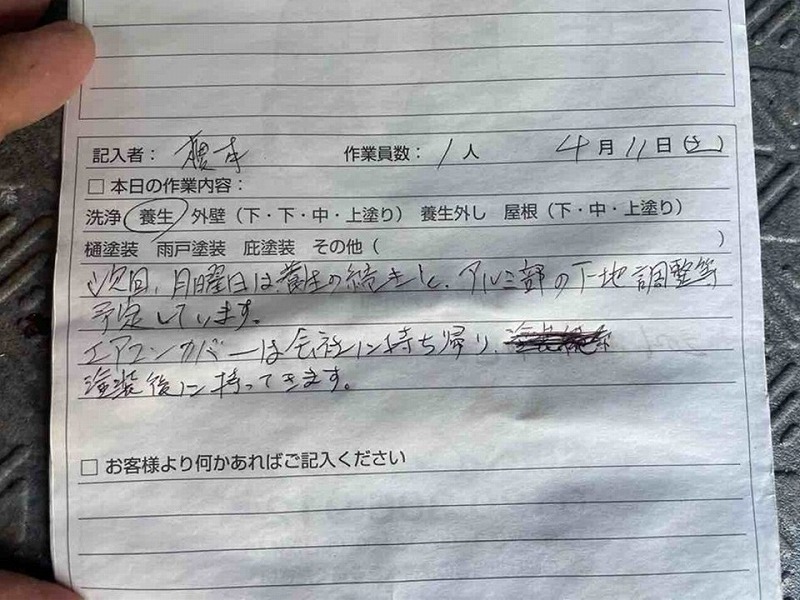 記入者： 作業員数： 1人 4月11日(土)
□ 本日の作業内容：
洗浄 養生 外壁（下・下・中・上塗り） 養生外し 屋根（下・中・上塗り）
樋塗装 雨戸塗装 庇塗装 その他（ ）
次回、月曜日は養生の続きと、アルミ部の下地調整等
予定しています。
エアコンカバーは会社に持ち帰り、
塗装後に持ってきます。
□ お客様より何かあればご記入ください